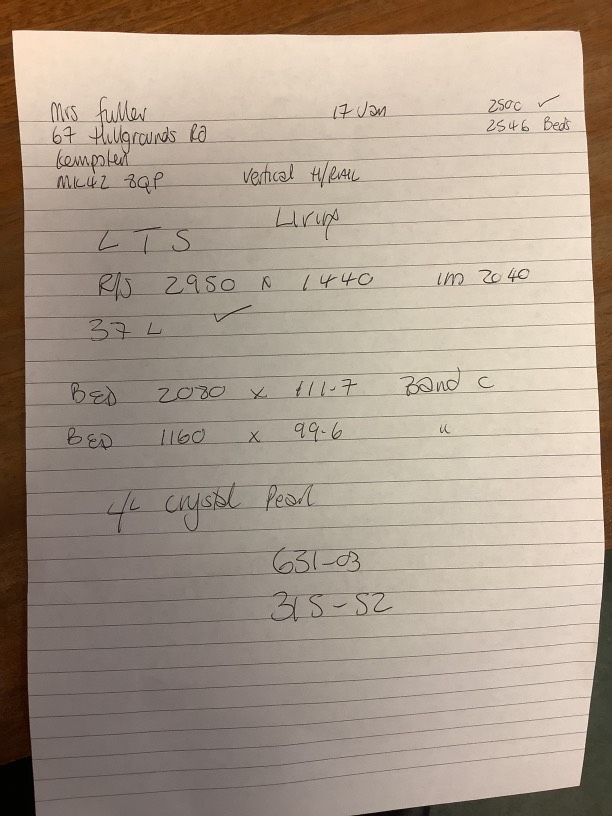 Mrs Fuller 17 Jan 250c ✓
67 Hillgrounds Rd 2546 Beds
Kempston
MK42 8QP Vertical H/RAIL
Living
L T S
R/S 2950 A 1440 IM 2040
37 L ✓
BED 2080 x 111.7 Band C
BED 1160 x 99.6 "
4/L Crystal Pearl
631-03
315-52